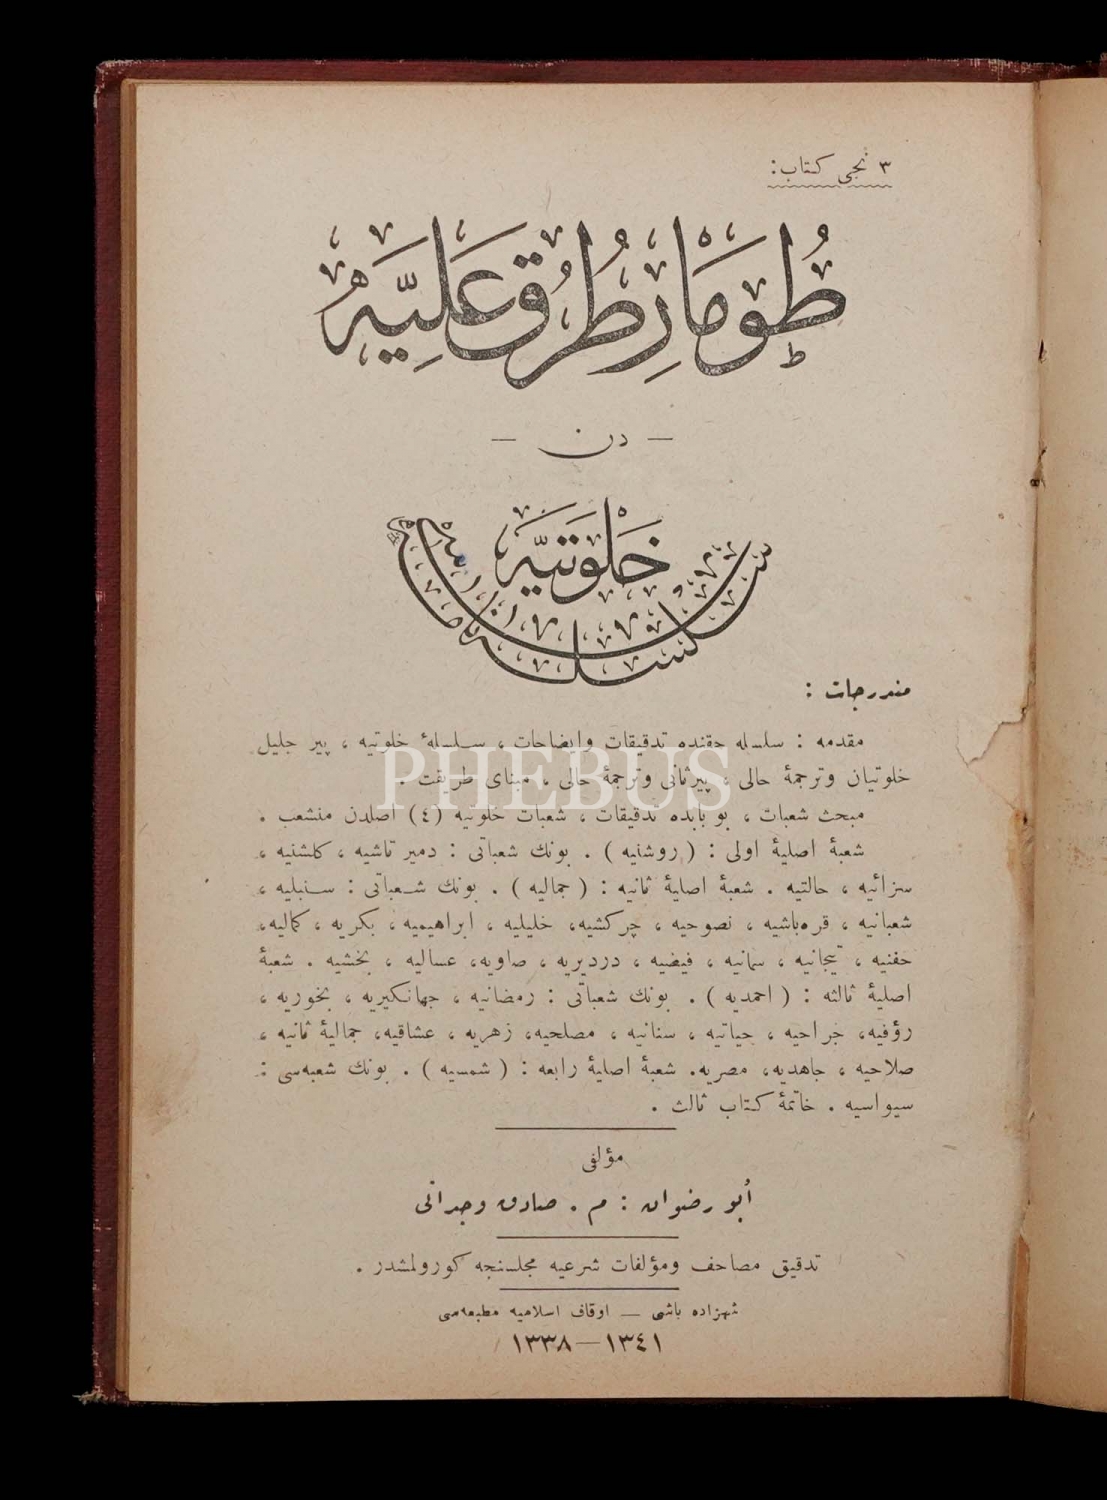 ٣ نجی كتاب:
طُومَارِ طُرُق عَلِيَّه
— دن —
خَلْوَتِيَّه
سلسله‌نامه‌سی
مندرجات :
مقدمه : سلسله حقنده تدقيقات وايضاحات ، سلسلهٔ خلوتيه ، پير جليل
خلوتيان وترجمهٔ حالی ، پيرثانی وترجمهٔ حالی ، مبنای طريقت .
مبحث شعبات ، بو بابده تدقيقات ، شعبات خلوتيه (٤) اصلدن منشعب .
شعبهٔ اصليهٔ اولی : ( روشنيه ) . بونك شعباتی : دمير تاشيه ، كلشنيه ،
سزائيه ، حالتيه . شعبهٔ اصليهٔ ثانيه : ( جماليه ) . بونك شعباتی : سنبليه ،
شعبانيه ، قره‌باشيه ، نصوحيه ، چركشيه، خليليه ، ابراهيميه ، بكريه ، كماليه،
حفنيه ، تيجانيه ، سمانيه ، فيضيه ، درديريه ، صاويه، عساليه ، بخشيه . شعبهٔ
اصليهٔ ثالثه : ( احمديه ) . بونك شعباتی : رمضانيه ، جهانكيريه ، بخوريه ،
رؤفيه، جراحيه ، حياتيه ، سنانيه ، مصلحيه، زهريه ، عشاقيه، جماليهٔ ثانيه ،
صلاحيه ، جاهديه، مصريه. شعبهٔ اصليهٔ رابعه : ( شمسيه ) . بونك شعبه‌سی :
سيواسيه . خاتمهٔ كتاب ثالث .
مؤلفی
أبو رضوان : م . صادق وجدانی
تدقيق مصاحف ومؤلفات شرعيه مجلسنجه كورولمشدر .
شهزاده باشی — اوقاف اسلاميه مطبعه‌سی
١٣٤١—١٣٣٨
PHEBUS